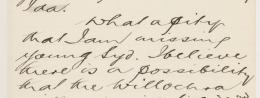 Ida.
What a pity
that I am missing
young Syd. I believe
there is a possibility
that the Willochra